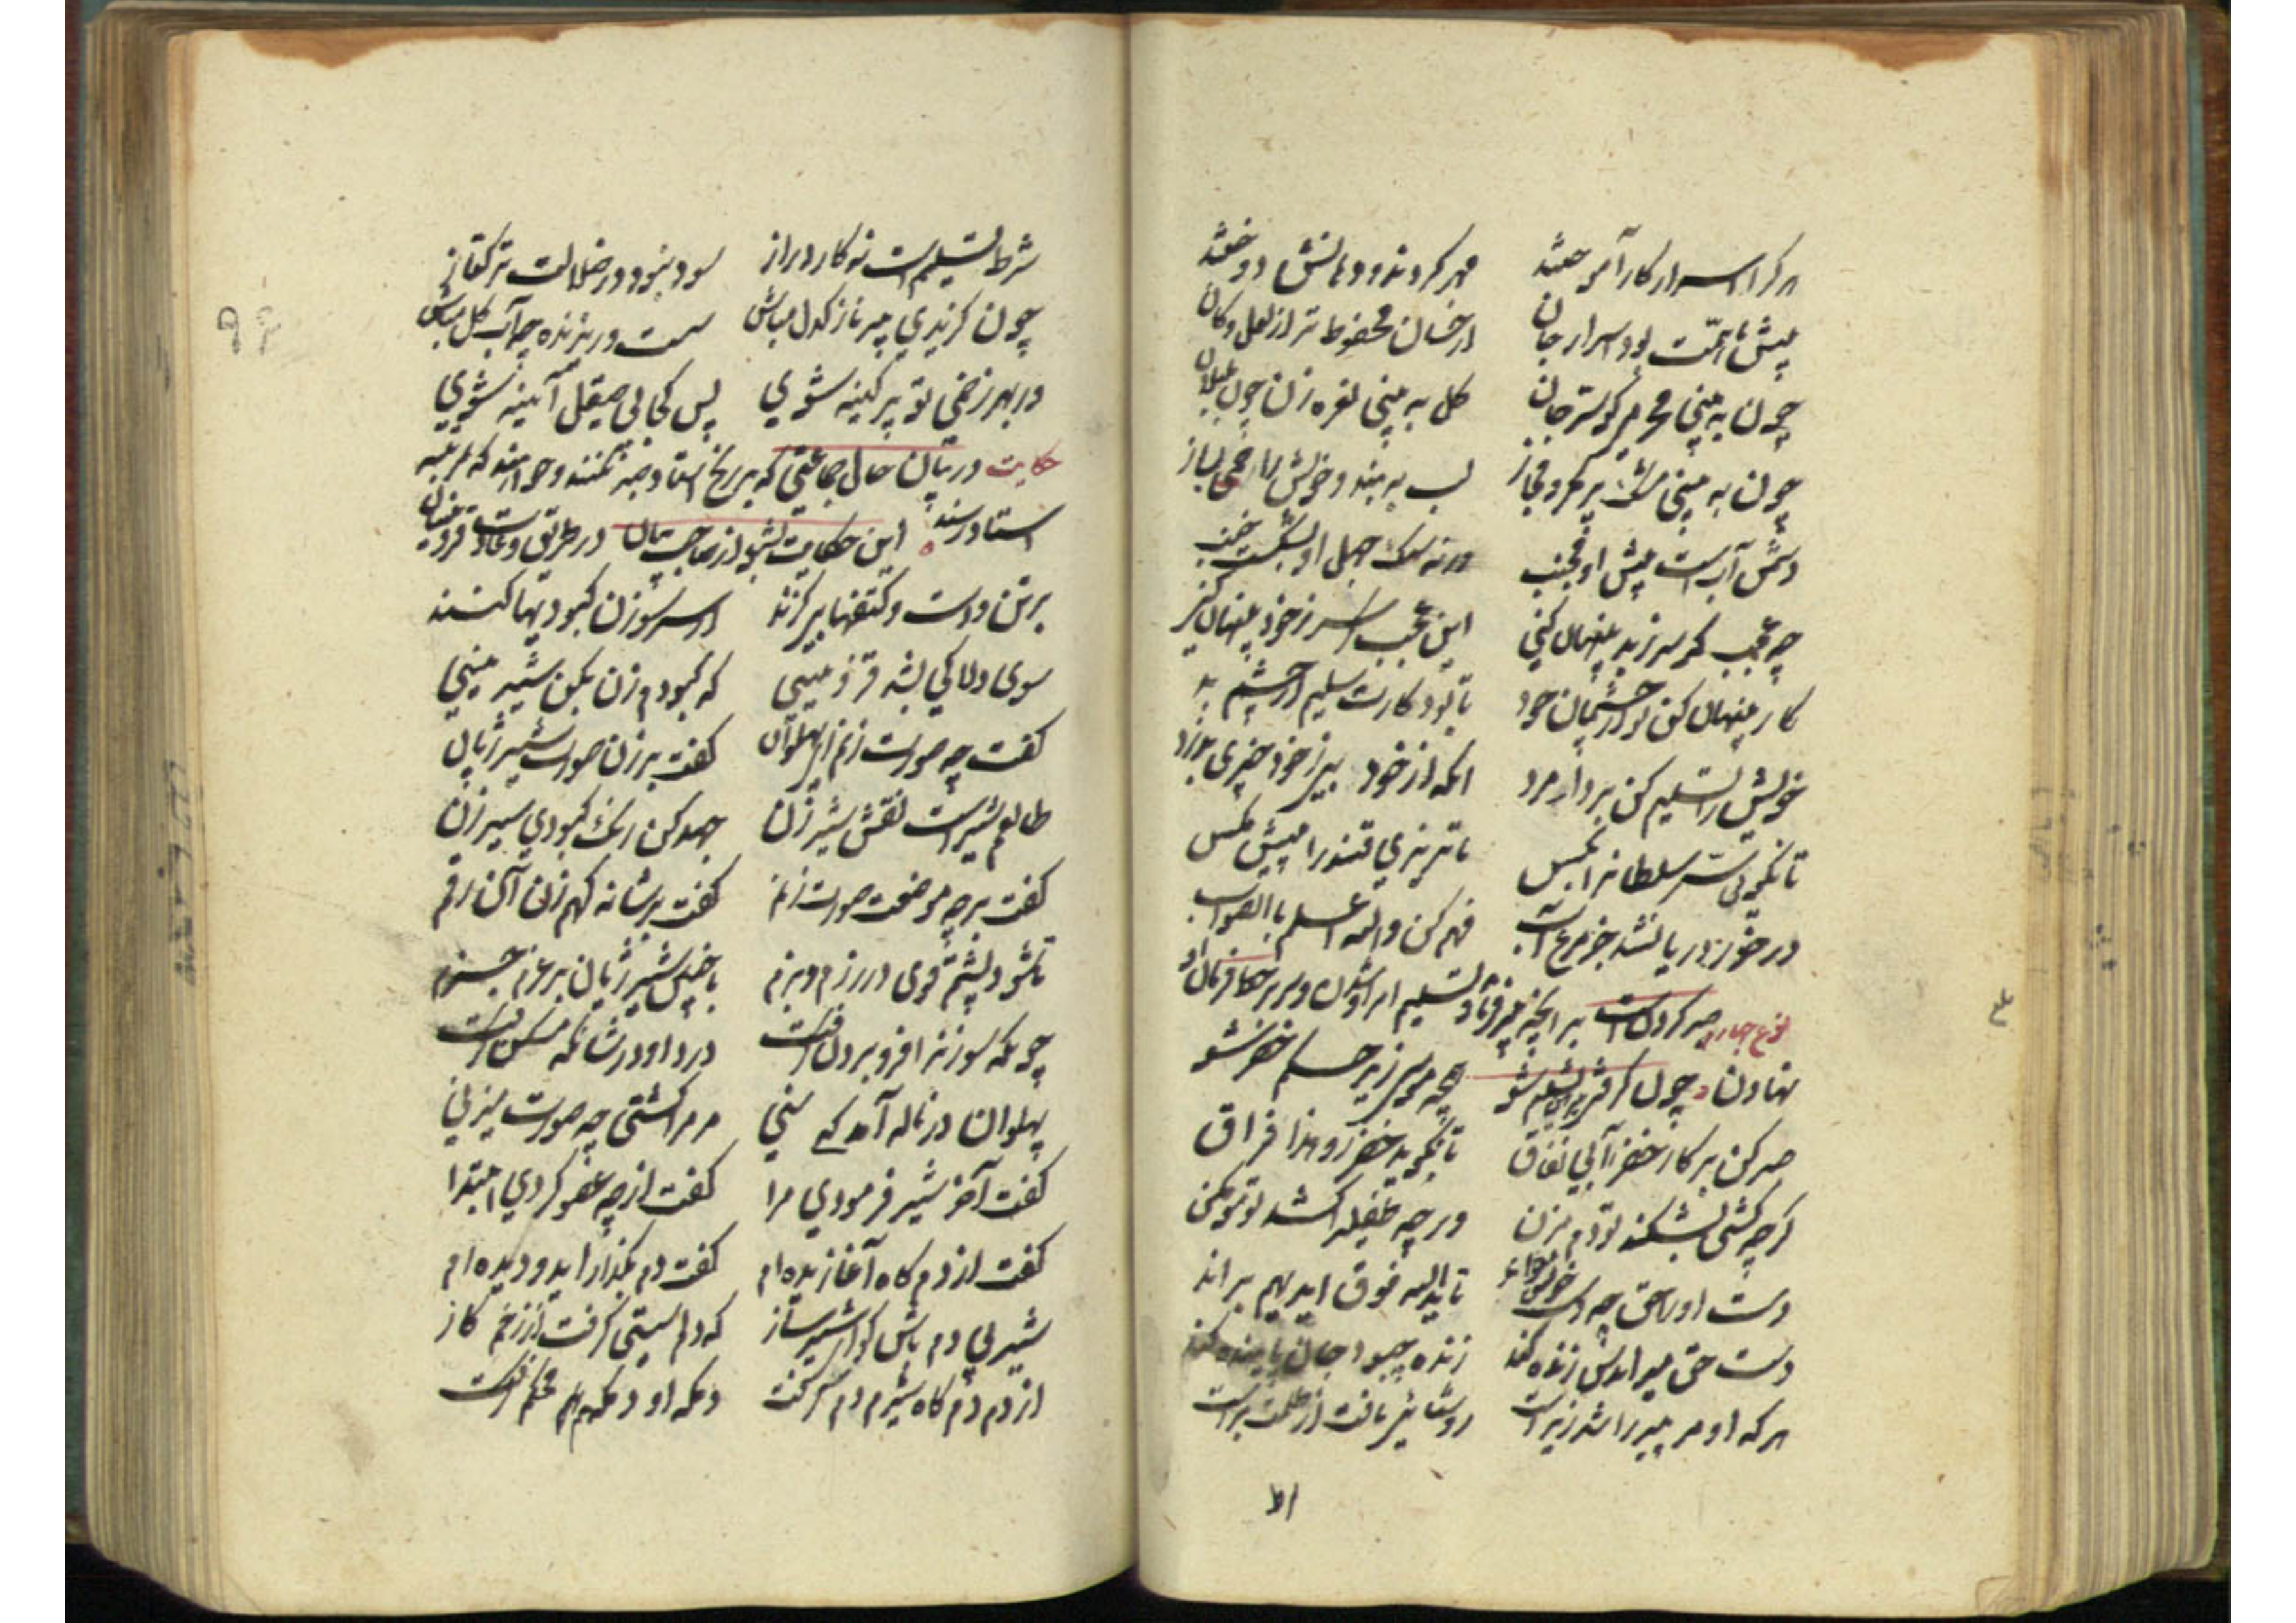 هر کرا اسرار کار آموختند مهر کردند و دهانش دوختند
پیش با همت بود اسرار جان از خسان محفوظ تر از لعل و کان
چون به بینی محرمی کو سر جان گل به بینی نعره زن چون بلبلان
چون به بینی مشک پر مکر و مجاز لب به بند و خویش را خمی بساز
دشمن آبست پیش او مجنب ورنه سنک جهل او بشکست خنب
چه عجب کر سر ز بد پنهان کنی این عجب سر ز خود پنهان کنی
کار پنهان کن تو از چشمان خود تا بود کارت سلیم از چشم بد
خویش را تسلیم کن بر دار مزد انکه از خود بی ز خود چیزی بدزد
تا نکویی سر سلطان را بکس تا نریزی قند را پیش مکس
در خور دریا نشد جز مرغ آب فهم کن والله اعلم بالصواب
نوع چهارم صبر کردنست بر انچه پیر فرماید تسلیم امر او شدن و سر بر خط فرمان او
نهادن چون کرفتی پیر هین تسلیم شو همچو موسی زیر حکم خضر شو
صبر کن بر کار خضر ای بی نفاق تا نکوید خضر رو هذا فراق
کرچه کشتی بشکند تو دم مزن ورچه طفلی را کشد تو مو مکن
دست او را حق چو دست خویش خواند تا یدالله فوق ایدیهم براند
دست حق میراندش زنده کند زنده چبود جان پاینده کند
هر که او مر پیر را شد زیردست روشنایی یافت از ظلمت برست
شرط تسلیم است نه کار دراز سود نبود در ضلالت ترکتاز
چون کزیدی پیر نازکدل مباش سست و ریزنده چو آب کل مباش
ور بهر زخمی تو پر کینه شوی پس کجا بی صیقل آیینه شوی
حکایت در بیان حال جماعتی که بر رنج استاد صبر نکنند و خواهند که بمرتبه
استاد رسند این حکایت بشنو از صاحب بیان در طریق و عادت قزوینیان
بر تن و دست و کتفها بی کزند از سر سوزن کبودیها کنند
سوی دلاکی بشد قزوینیی که کبودم زن بکن شیرینیی
کفت چه صورت زنم ای پهلوان کفت بر زن صورت شیر ژیان
طالعم شیرست نقش شیر زن جهد کن رنک کبودی سیر زن
کفت بر چه موضعت صورت زنم کفت بر شانه کهم زن آن رقم
تا شود پشتم قوی در رزم و بزم با چنین شیر ژیان بر عزم جزم
چونکه سوزن را فرو بردن کرفت درد او در شانکه مسکن کرفت
پهلوان در ناله آمد کی سنی مر مرا کشتی چه صورت میزنی
کفت آخر شیر فرمودی مرا کفت از چه عضو کردی ابتدا
کفت از دم کاه آغازیده ام کفت دم بکذار ای دو دیده ام
شیر بی دم باش کو ای شیرساز که دلم سستی کرفت از زخم کاز
از دم و دم کاه شیرم دم کرفت دمکه او دمکهم محکم کرفت